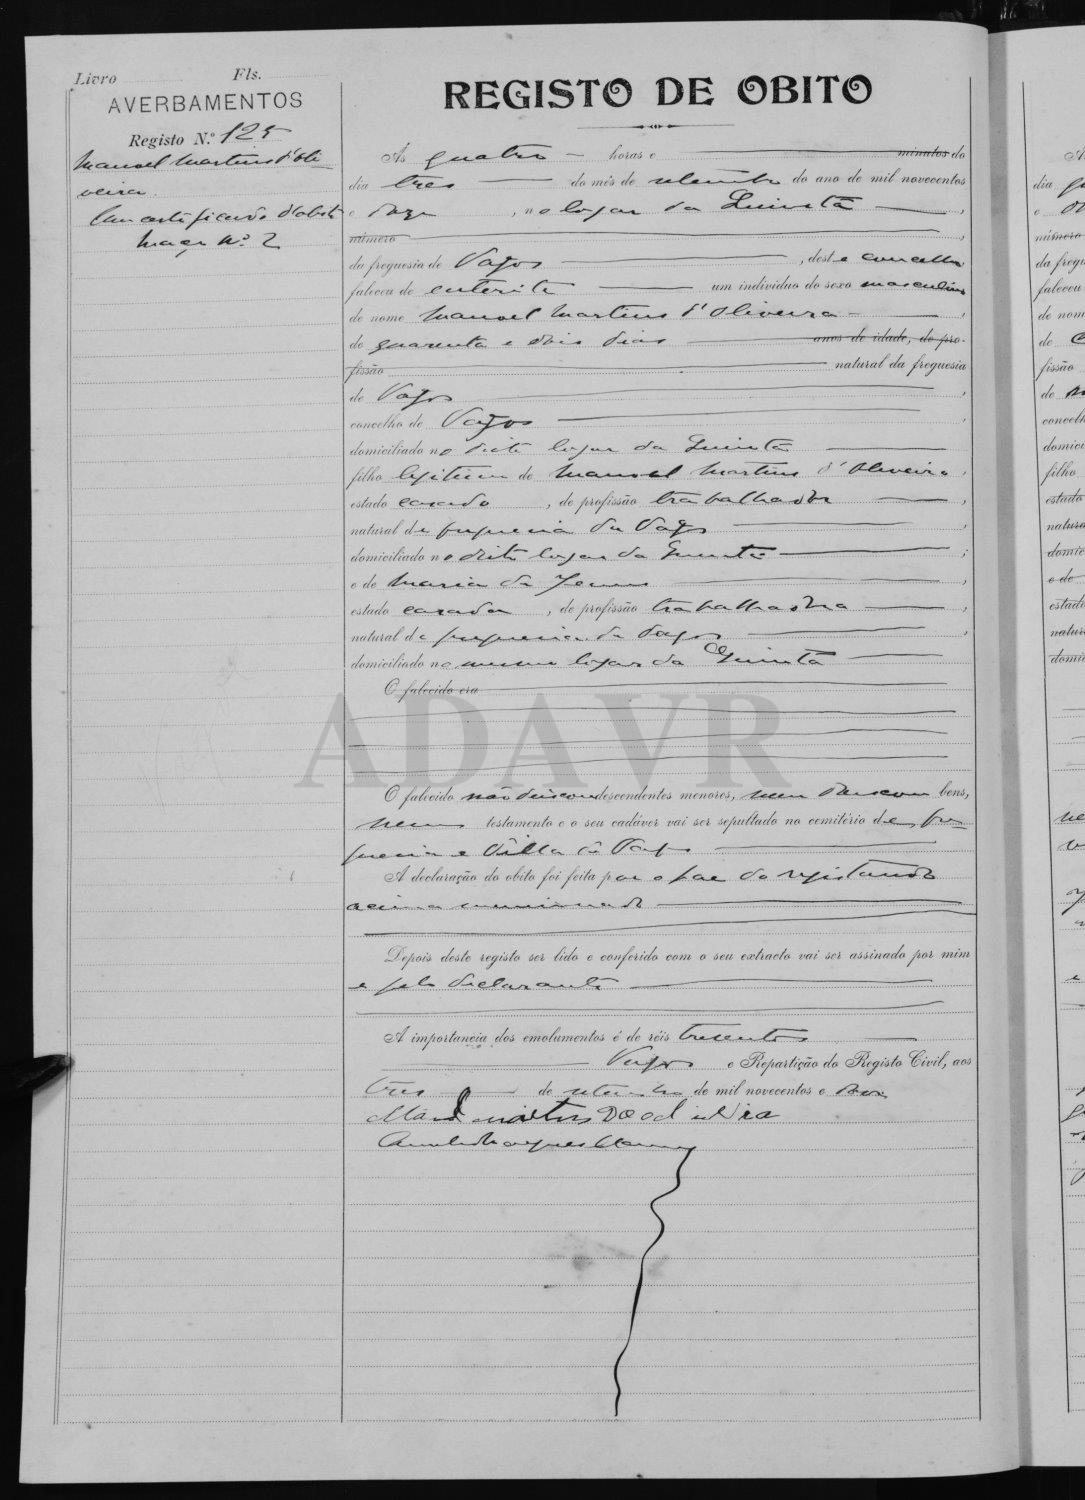 Livro Fls.
AVERBAMENTOS
Registo N.º 125
Manoel Martins d'Oli-
veira
Um certificado d'obito
Maço Nº 2
REGISTO DE OBITO
Ás quatro horas e minutos do
dia tres do mês de setembro do ano de mil novecentos
e doze, no logar da Quintã,
número
da freguesia de Vagos, deste concelho
faleceu de enterite um individuo do sexo masculino
de nome Manoel Martins d'Oliveira
de quarenta e dois dias anos de idade, de pro-
fissão natural da freguesia
de Vagos,
concelho de Vagos,
domiciliado no dito logar da Quintã
filho legitimo de Manoel Martins d'Oliveira,
estado casado, de profissão trabalhador,
natural da freguesia de Vagos,
domiciliado no dito logar da Quintã;
e de Maria de Jesus,
estado casada, de profissão trabalhadora,
natural da freguesia de Vagos,
domiciliado no mesmo logar da Quintã
O falecido era
ADAVR
O falecido não deixou descendentes menores, nem deixou bens,
nem testamento e o seu cadáver vai ser sepultado no cemitério da fre-
guesia e Villa de Vagos
A declaração do obito foi feita por o pae do registando
acima mencionado
Depois deste registo ser lido e conferido com o seu extracto vai ser assinado por mim
e pelo declarante
A importancia dos emolumentos é de réis tresentos
Vagos e Repartição do Registo Civil, aos
tres de setembro de mil novecentos e doze